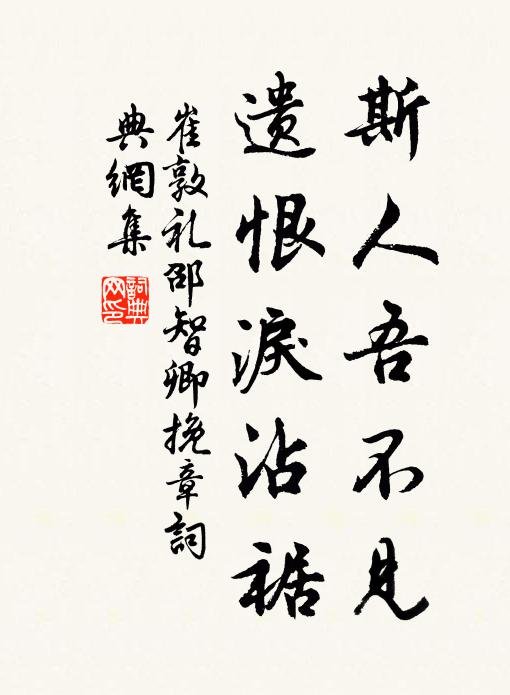 斯人吾不見
遗恨淚沾裾
崔敦礼邵智卿挽章詞
典網集
詞典
网印